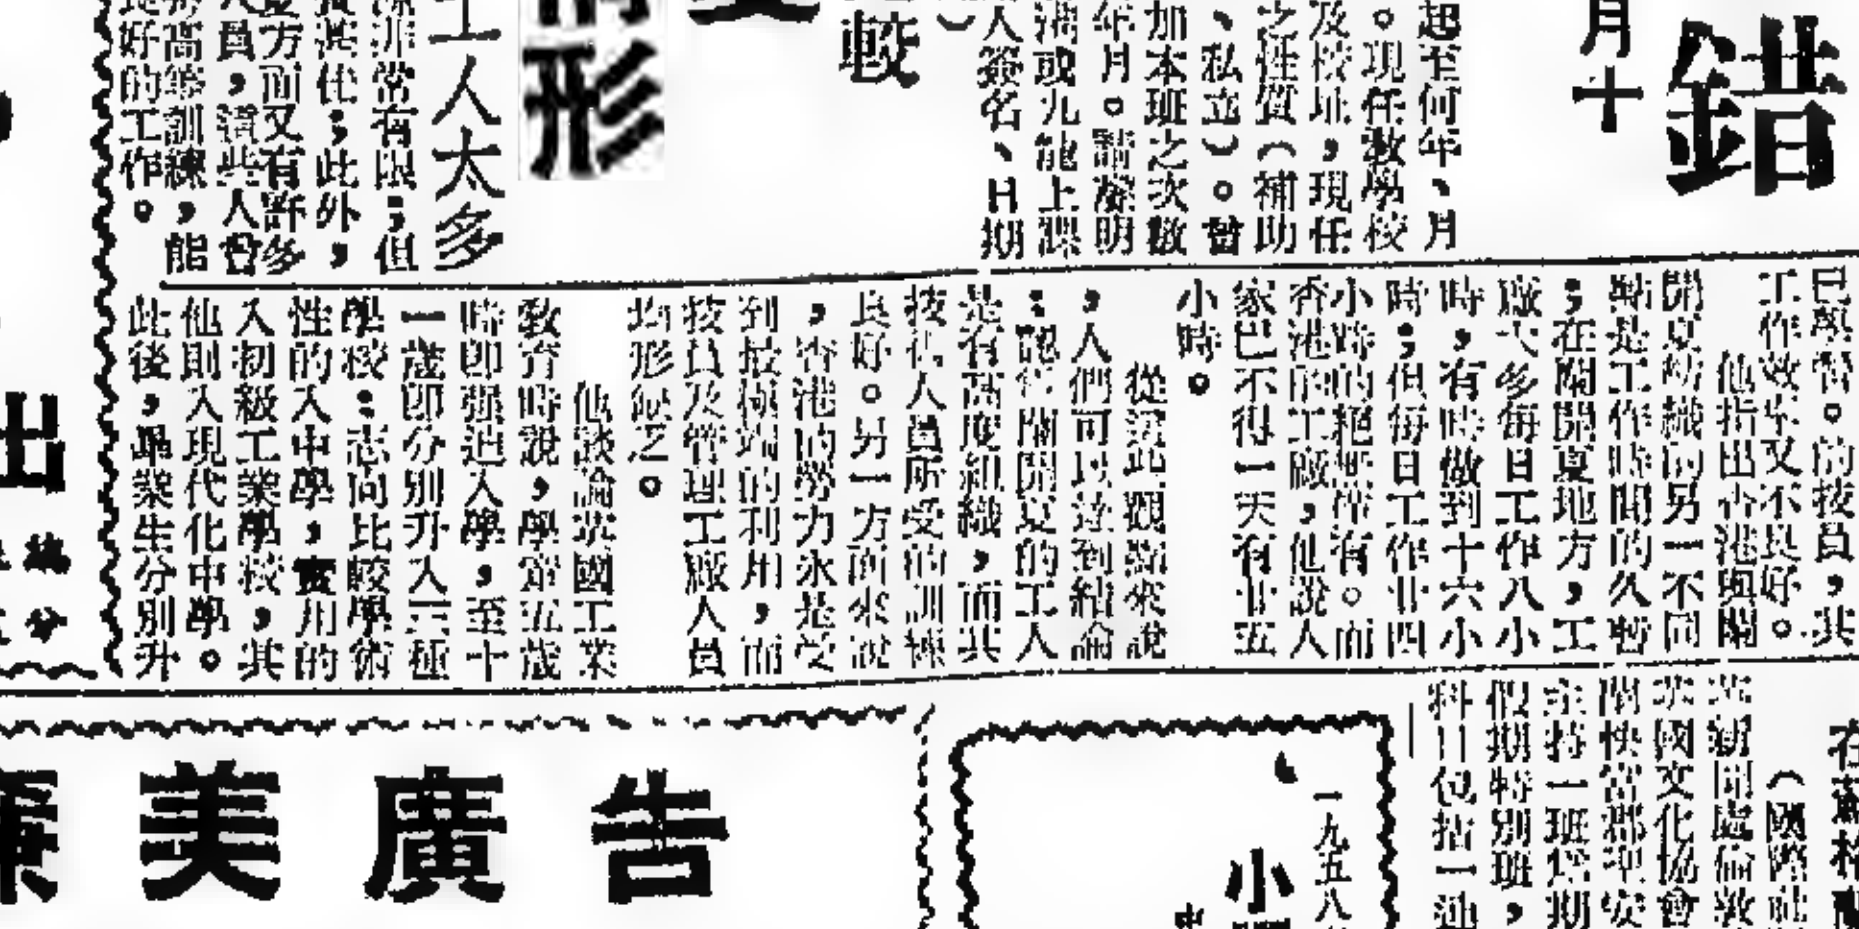 錯
月十
起至何年、月
。現任敎學校
及校址，現任
之性質（補助
、私立）。曾
加本班之次數
年月。請凝明
灣或九龍上課
人簽名、日期
較
形
工人太多
非常有限；但
其他；此外，
方面又有許多
人員，這些人曾
高等訓練，能
良好的工作。
已學習。的技員，其
工作效率又不良好。
他指出香港與關
開夏紡織的另一不同
點是工作時間的久暫
；在關開夏地方，工
廠大多每日工作八小
時，有時做到十六小
時；但每日工作廿四
小時的絕無僅有。而
香港的工廠，他說人
家巴不得一天有廿五
小時。
從這些觀點來說
，人們可以達到結論
：認管關開夏的工人
是有高度組織，而其
技術人員所受的訓練
良好。另一方面來說
，香港的勞力永是受
到最極端的利用，而
技員及管理工廠人員
均形缺乏。
他談論英國工業
敎育時說，學童五歲
時即强迫入學，至十
一歲即分別升入三種
學校：志向比較學術
性的入中學，實用的
入初級工業學校，其
他則入現代化中學。
此後，畢業生分別升
出
分
在蘇格蘭
（國際社
英新聞處倫敦
英國文化協會
主持一班
假期特別班，
科目包括一連
一九五八
小
廉美廣告